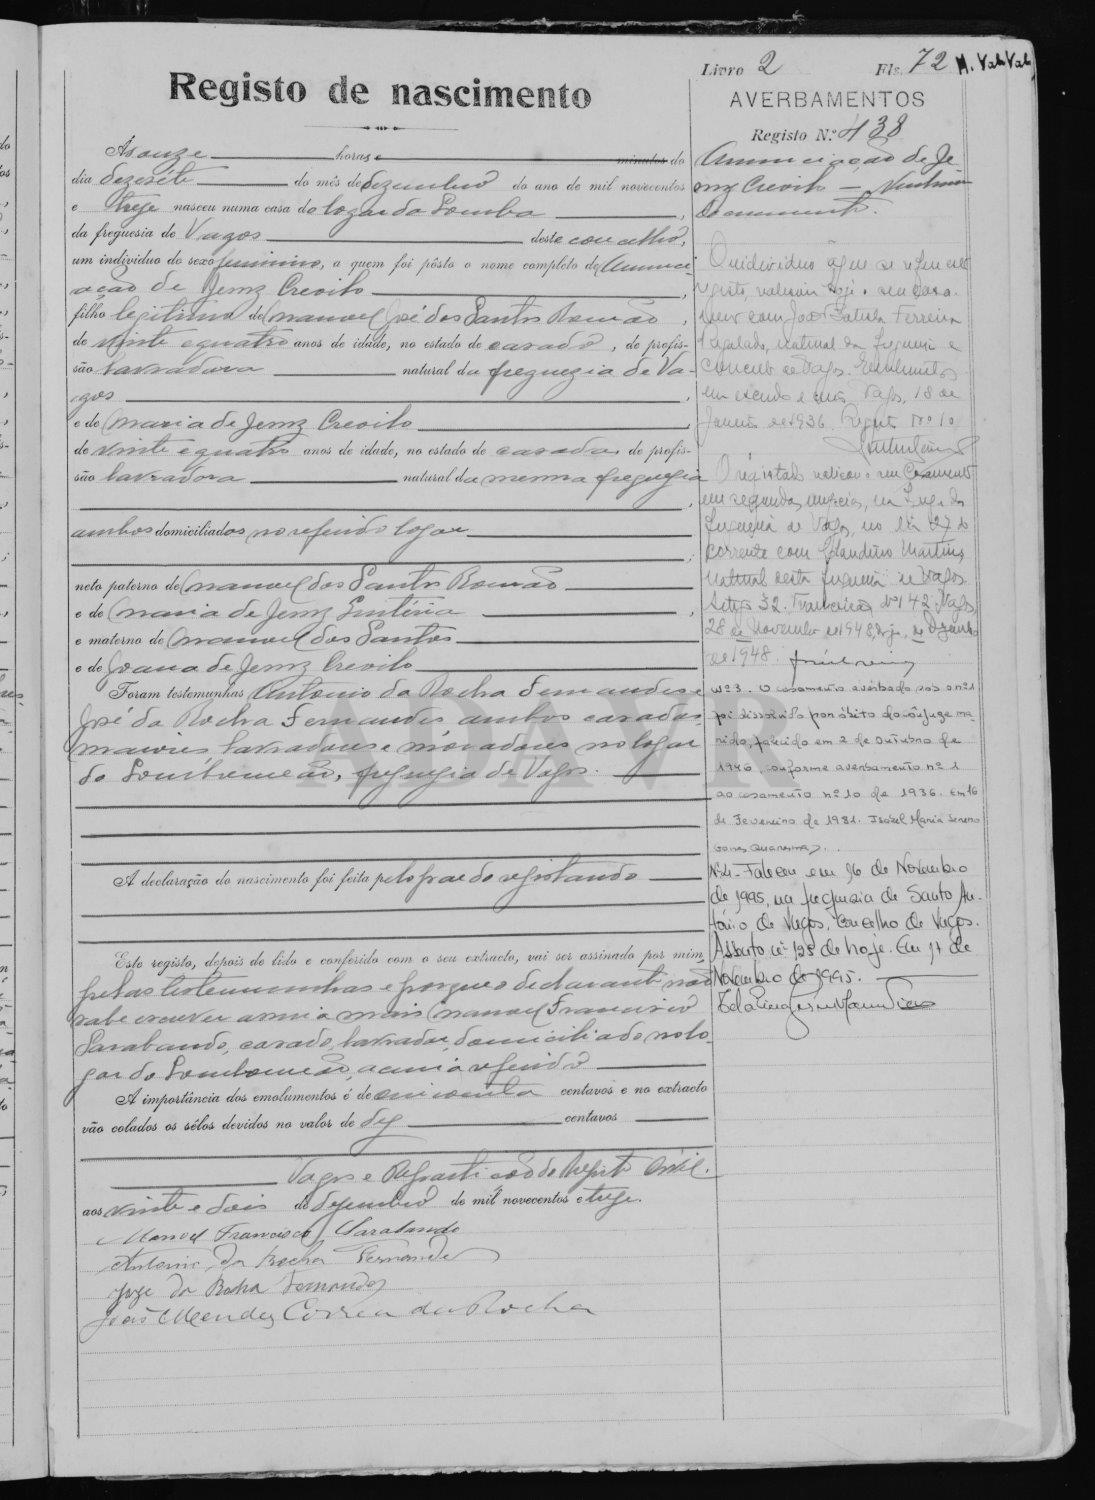 Livro 2 Fls. 72
Registo de nascimento
AVERBAMENTOS
Registo N.º 438
Ás onze horas e minutos do
dia dezesete do mês de Dezembro do ano de mil novecentos
e treze nasceu numa casa do logar da Lomba
da freguesia de Vagos deste concelho,
um individuo do sexo feminino, a quem foi pôsto o nome completo de Anunci-
ação de Jemz Crevilo
filho legitima de Manoel José dos Santos Romão,
de vinte e quatro anos de idade, no estado de casado, de profis-
são lavradora natural da freguezia de Va-
gos
e de Maria de Jemz Crevilo
de vinte e quatro anos de idade, no estado de casada, de profis-
são lavradora natural da mesma freguezia
ambos domiciliados no referido logar
neto paterno de Manoel dos Santos Romão
e de Maria de Jemz
e materno de Manoel dos Santos
e de Joana de Jemz Crevilo
Foram testemunhas Antonio da Rocha Fernandes e
José da Rocha Fernandes ambos casados,
maiores lavradores e moradores no logar
do Lombomeão, freguezia de Vagos.
A declaração do nascimento foi feita pelo pae do registando
Este registo, depois de lido e conferido com o seu extracto, vai ser assinado por mim,
pelas testemunhas e porque o declarante não
sabe escrever assina mais Manoel Francisco
Sarabando, casado, lavrador, domiciliado no lo-
gar do Lombomeão, acima referido
A importância dos emolumentos é de cincoenta centavos e no extracto
vão colados os sêlos devidos no valor de dez centavos
Vagos e Repartição do Registo Civil.
aos vinte e dois de Dezembro de mil novecentos e treze.
Manoel Francisco Sarabando
Antonio da Rocha Fernandes
Joze da Rocha Fernandes
João Mendes Correa da Rocha
Anunciação de Je
mz Crevilo — Nenhum
documento.
O individuo a que se refere este
registo, realisou hoje o seu casa-
mento com João Batista Ferreira
natural da freguesia e
concelho de Vagos.
Vagos, 18 de
Janeiro de 1936. Registo Nº 10
O registado realizou o seu casamento
em segundas nupcias, na Igreja da
freguesia de Vagos, no dia 27 do
corrente com Claudino Martins,
natural desta freguesia de Vagos
Nº 142. Vagos,
28 de Novembro de 1948, digo, de Dezembro
de 1948.
Nº 3. O casamento averbado sob o nº 1
foi dissolvido por óbito do cônjuge ma-
rido, falecido em 2 de Outubro de
1946 conforme averbamento nº 1
ao casamento nº 10 de 1936. Em 16
de Fevereiro de 1981. Isabel Maria Sereno
Gomes Quaresma.
Nº 4 - Faleceu em 16 de Novembro
de 1995, na freguesia de Santo An-
tónio de Vagos, concelho de Vagos.
Assento nº 128 de hoje. Em 17 de
Novembro de 1995.
ADAVR